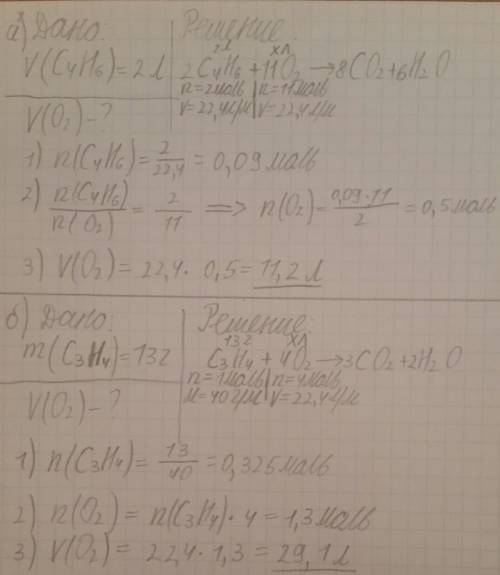 а) Дано: Решение:
2л хл
V(C4H6)=2л 2C4H6 + 11O2 → 8CO2+6H2O
n=2моль n=11моль
V=22,4л/м V=22,4л/м
V(O2)-?
1) n(C4H6)= 2/22,4 = 0,09 моль
2) n(C4H6)/n(O2) = 2/11 => n(O2)= 0,09·11/2 = 0,5 моль
3) V(O2)= 22,4· 0,5= 11,2 л
б) Дано: Решение:
13г хл
m(C3H4)=13г C3H4 + 4O2 → 3CO2+2H2O
n=1моль n=4моль
M=40г/м V=22,4л/м
V(O2)-?
1) n(C3H4)= 13/40 = 0,325 моль
2) n(O2) = n(C3H4)· 4 = 1,3 моль
3) V(O2)= 22,4· 1,3 = 29,1 л